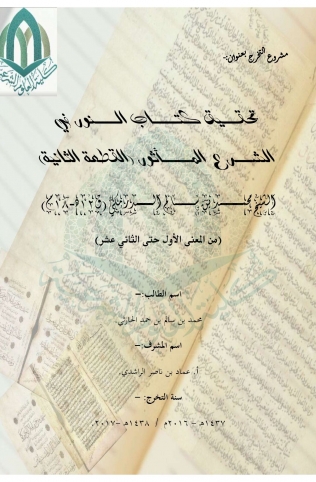 مشروع التخرج بعنوان:-
تحقيق كتاب النور في
الشرع المأثور (القطعة الثانية)
الشيخ محمد بن سالم
(من المعنى الأول حتى الثاني عشر)
اسم الطالب:-
محمد بن سالم بن حمد الحارثي
اسم المشرف:-
أ. عماد بن ناصر الراشدي
سنة التخرج: -
١٤٣٧هـ - ٢٠١٦م / ١٤٣٨هـ -٢٠١٧م